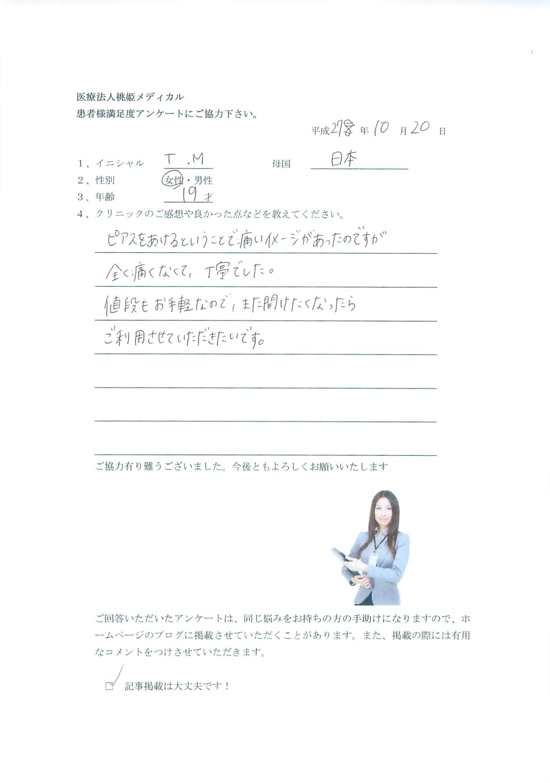 医療法人桃姫メディカル
患者様満足度アンケートにご協力下さい。
平成 年 10 月 20 日
1、イニシャル T.M 母国 日本
2、性別 女性・男性
3、年齢 19 才
4、クリニックのご感想や良かった点などを教えてください。
ピアスをあけるということで痛いイメージがあったのですが
全く痛くなくて、丁寧でした。
値段もお手軽なので、また開けたくなったら
ご利用させていただきたいです。
ご協力有り難うございました。今後ともよろしくお願いいたします
ご回答いただいたアンケートは、同じ悩みをお持ちの方の手助けになりますので、ホ
ームページのブログに掲載させていただくことがあります。また、掲載の際には有用
なコメントをつけさせていただきます。
記事掲載は大丈夫です！